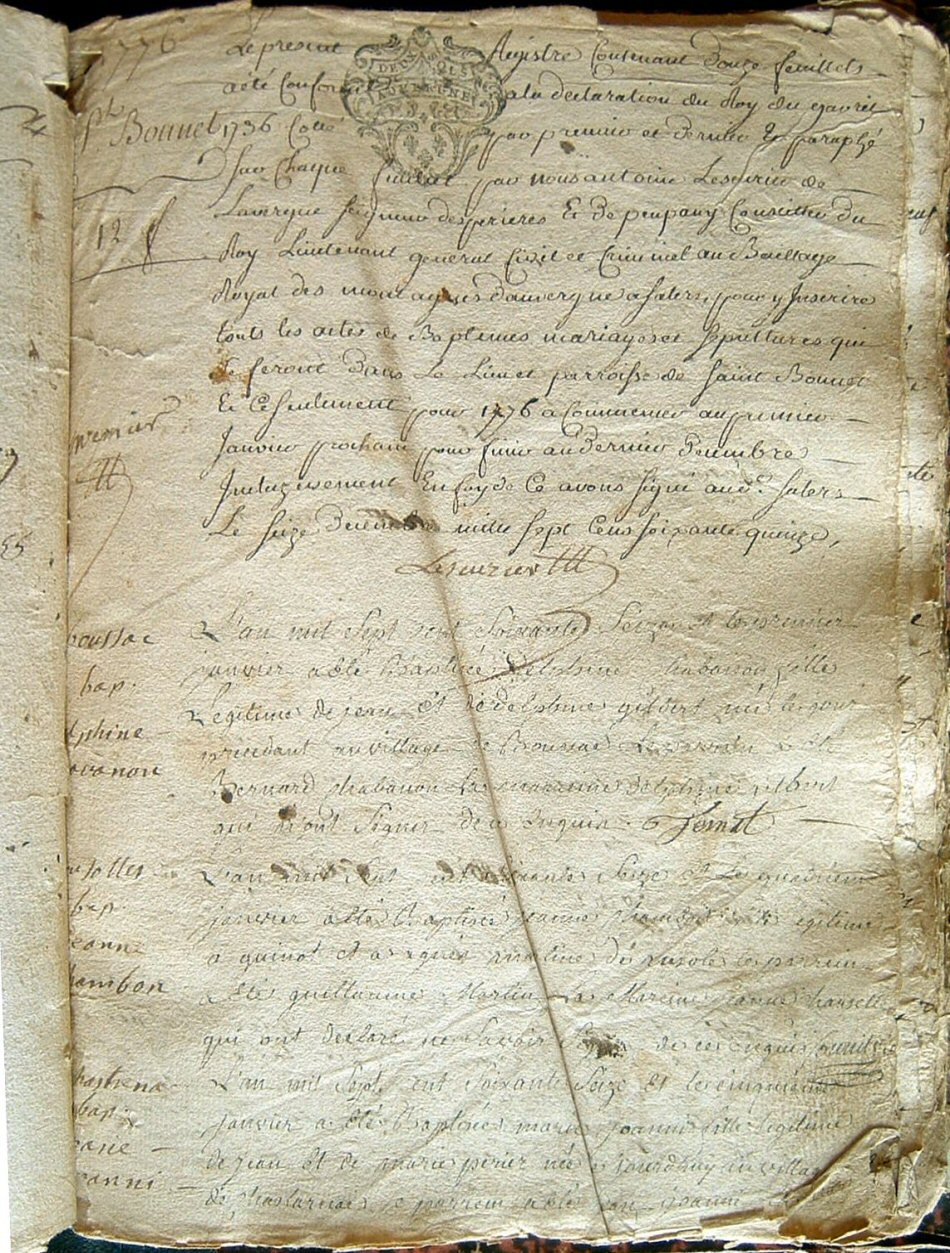 1776
St Bonnet
12 f
Le present Registre Contenant Douze feuillets
DEUX SOLS
a été Conforme a la declaration du Roy du 9 avril
1736 Cotté par premier et dernier & paraphé
sur Chaque feuillet par nous antoine Lescurier de
Lavergne seigneur desperieres Et de Conseiller du
Roy Lieutenant general Civil et Criminel au Bailliage
Royal des montagnes d'auvergne a Salers, pour y Inserire
touts les actes de Baptemes mariages et sepultures qui
se feront Dans Le Lieu et parroisse de Saint Bonnet
Et Ce seulement pour 1776 a Commencer au premier
Janvier prochain pour finir au Dernier Decembre
Inclusivement En foy de Ce avons signé aud. Salers
Le seize Decembre mille sept Cens soixante quinze,
premier
Lescurier
L'an mil sept cent soixante Seize et le premier
janvier a été Baptisée delphine chabanon fille
Legitime de jean Et de delphine gilbert née le jour
précédant au village de Broussac Le parrain a été
Bernard chabanon La marraine delphine gilbert
qui n'ont signer de ce enquis
oussac
bap.
phine
vanon
L'an mil sept cent soixante Seize et Le quatrième
janvier a été Baptisée jeanne chambon fille legitime
a et a agnès née de le parrein
a été guillaume Martin La Mareine jeanne
qui ont déclaré ne savoir signer de ce enquis
bap
jeanne
hambon
L'an mil sept cent soixante Seize et le cinquième
janvier a été Baptisée marie joanni fille legitime
de jean et de marie perier née aujourd'huy au village
de le parrein a été joanni
bap
anni